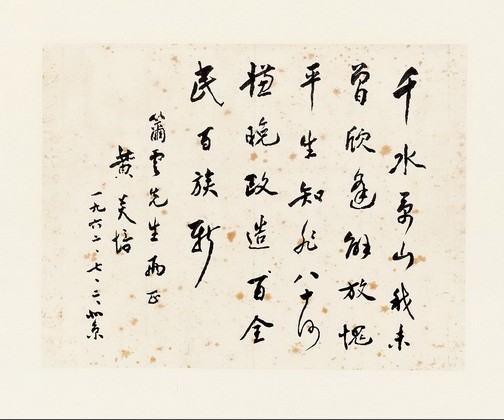 千水萬山我未
曾欣逢解放愧
平生知非八十何
嫌晚改造百全
民百族新
簫雲先生兩正
黄炎培
一九六二、七、二、北京